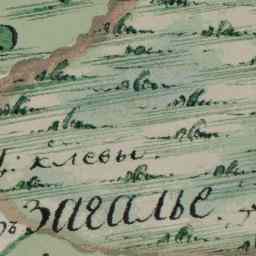 клевы.
Загалье.